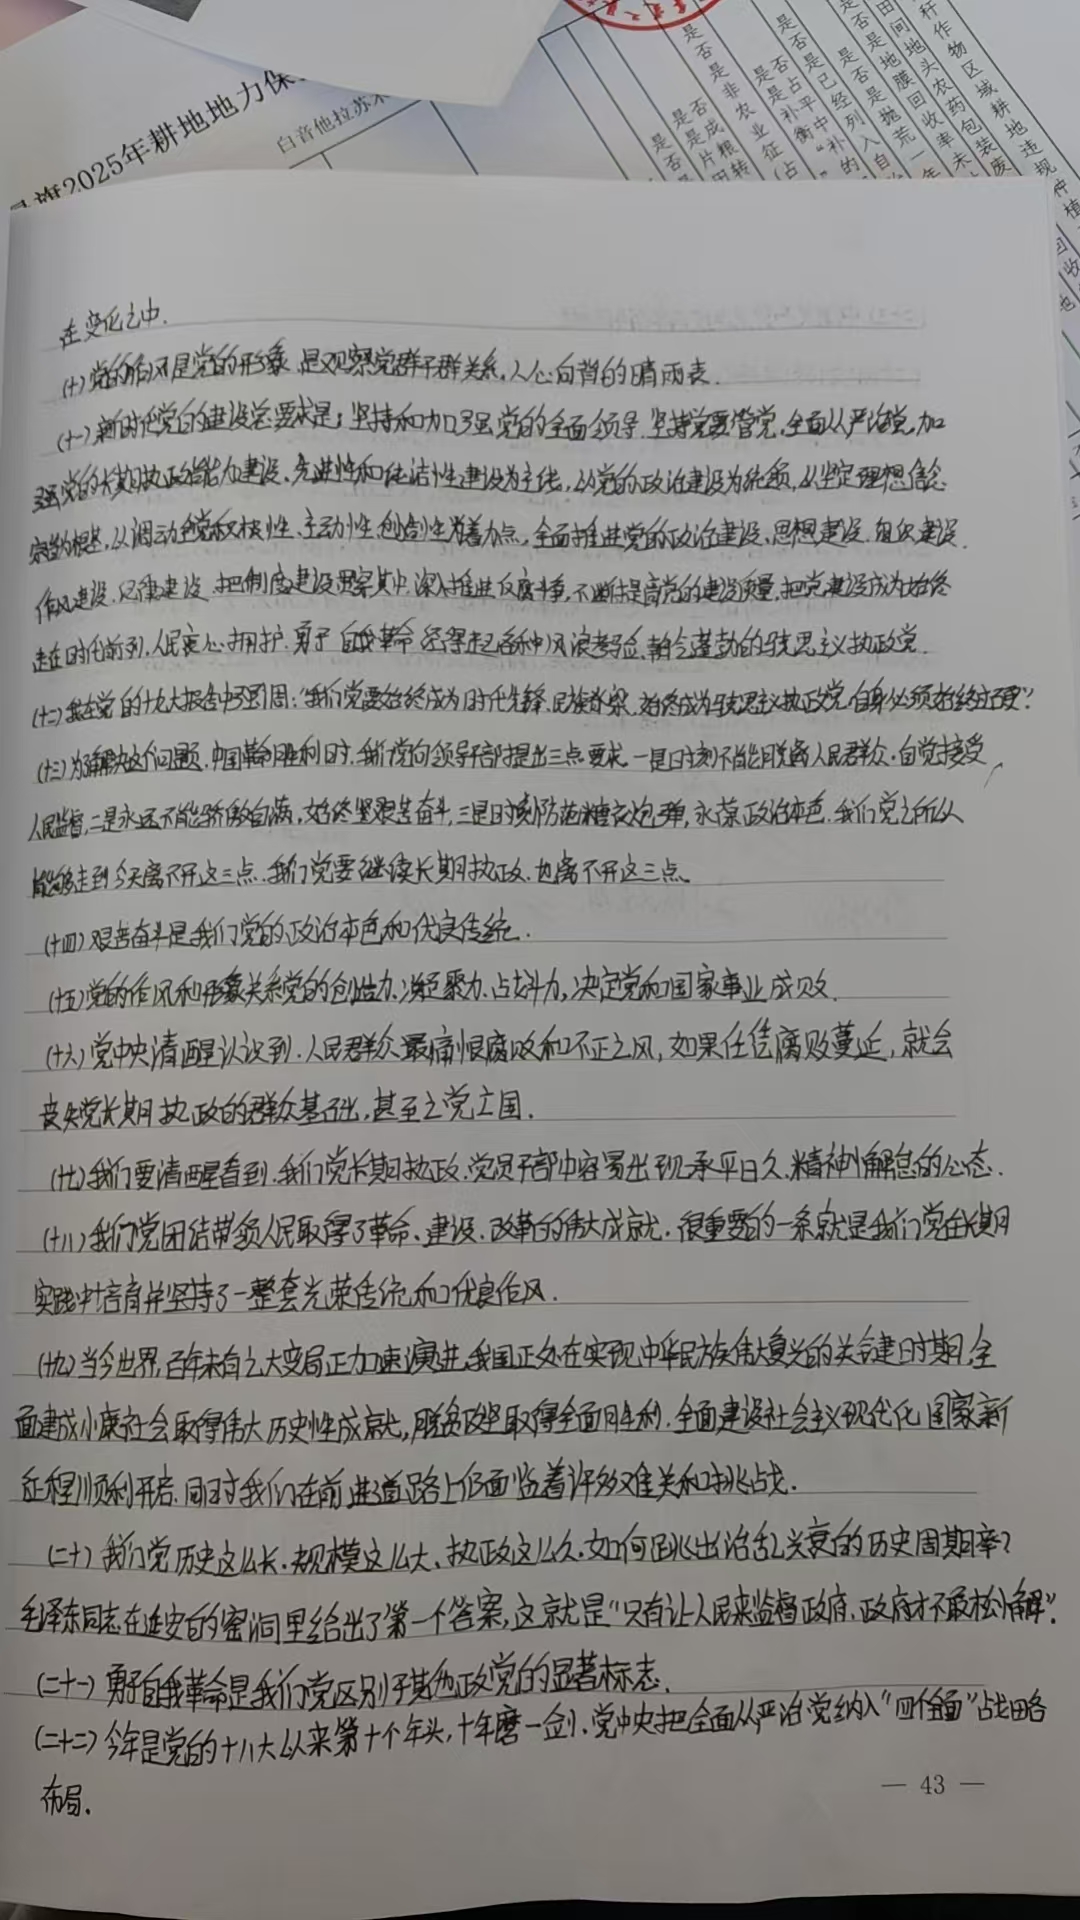 旗2025年耕地地力保
白音他拉苏木
是否是非农业征(占
是否是占补平衡中"补"的
是否是已经列入自
是否是抛荒一年
田间地头农药包装废
是否是地膜回收率未
秆作物区域耕地违规种植
是否成片粮田转
回收
在变化之中.
(十)党的作风是党的形象,是观察党群干群关系,人心向背的晴雨表.
(十一)新时代党的建设总要求是:坚持和加强党的全面领导.坚持党要管党,全面从严治党,加
强党的长期执政能力建设、先进性和纯洁性建设为主线,以党的政治建设为统领,以坚定理想信念
宗旨为根基,以调动全党积极性、主动性、创造性为着力点,全面推进党的政治建设、思想建设、组织建设、
作风建设、纪律建设,把制度建设贯穿其中,深入推进反腐斗争,不断提高党的建设质量,把党建设成为始终
走在时代前列,人民衷心拥护,勇于自我革命,经得起各种风浪考验,朝气蓬勃的马克思主义执政党.
(十二)我在党的十九大报告中强调:"我们党要始终成为时代先锋、民族脊梁,始终成为马克思主义执政党,自身必须始终过硬".
(十三)为了解决这个问题,中国革命胜利时,我们党向领导干部提出三点要求.一是时刻不能脱离人民群众,自觉接受
人民监督,二是永远不能骄傲自满,始终坚持艰苦奋斗,三是时刻防范糖衣炮弹,永葆政治本色,我们党之所以
能够走到今天离不开这三点,我们党要继续长期执政,也离不开这三点。
(十四)艰苦奋斗是我们党的政治本色和优良传统.
(十五)党的作风和形象关系党的创造力、凝聚力、战斗力,决定党和国家事业成败.
(十六)党中央清醒认识到,人民群众最痛恨腐败和不正之风,如果任凭腐败蔓延,就会
丧失党长期执政的群众基础,甚至亡党亡国.
(十七)我们要清醒看到,我们党长期执政,党员干部中容易出现承平日久、精神懈怠的心态.
(十八)我们党团结带领人民取得了革命、建设、改革的伟大成就,很重要的一条就是我们党在长期
实践中培育并坚持了一整套光荣传统和优良作风.
(十九)当今世界,百年未有之大变局正加速演进,我国正处在实现中华民族伟大复兴的关键时期,全
面建成小康社会取得伟大历史性成就,脱贫攻坚取得全面胜利,全面建设社会主义现代化国家新
征程顺利开启,同时我们在前进道路上仍面临着许多难关和挑战.
(二十)我们党历史这么长、规模这么大、执政这么久,如何跳出治乱兴衰的历史周期率?
毛泽东同志在延安的窑洞里给出了第一个答案,这就是"只有让人民来监督政府,政府才不敢松懈".
(二十一)勇于自我革命是我们党区别于其他政党的显著标志.
(二十二)今年是党的十八大以来第十个年头,十年磨一剑,党中央把全面从严治党纳入"四个全面"战略
布局.
— 43 —